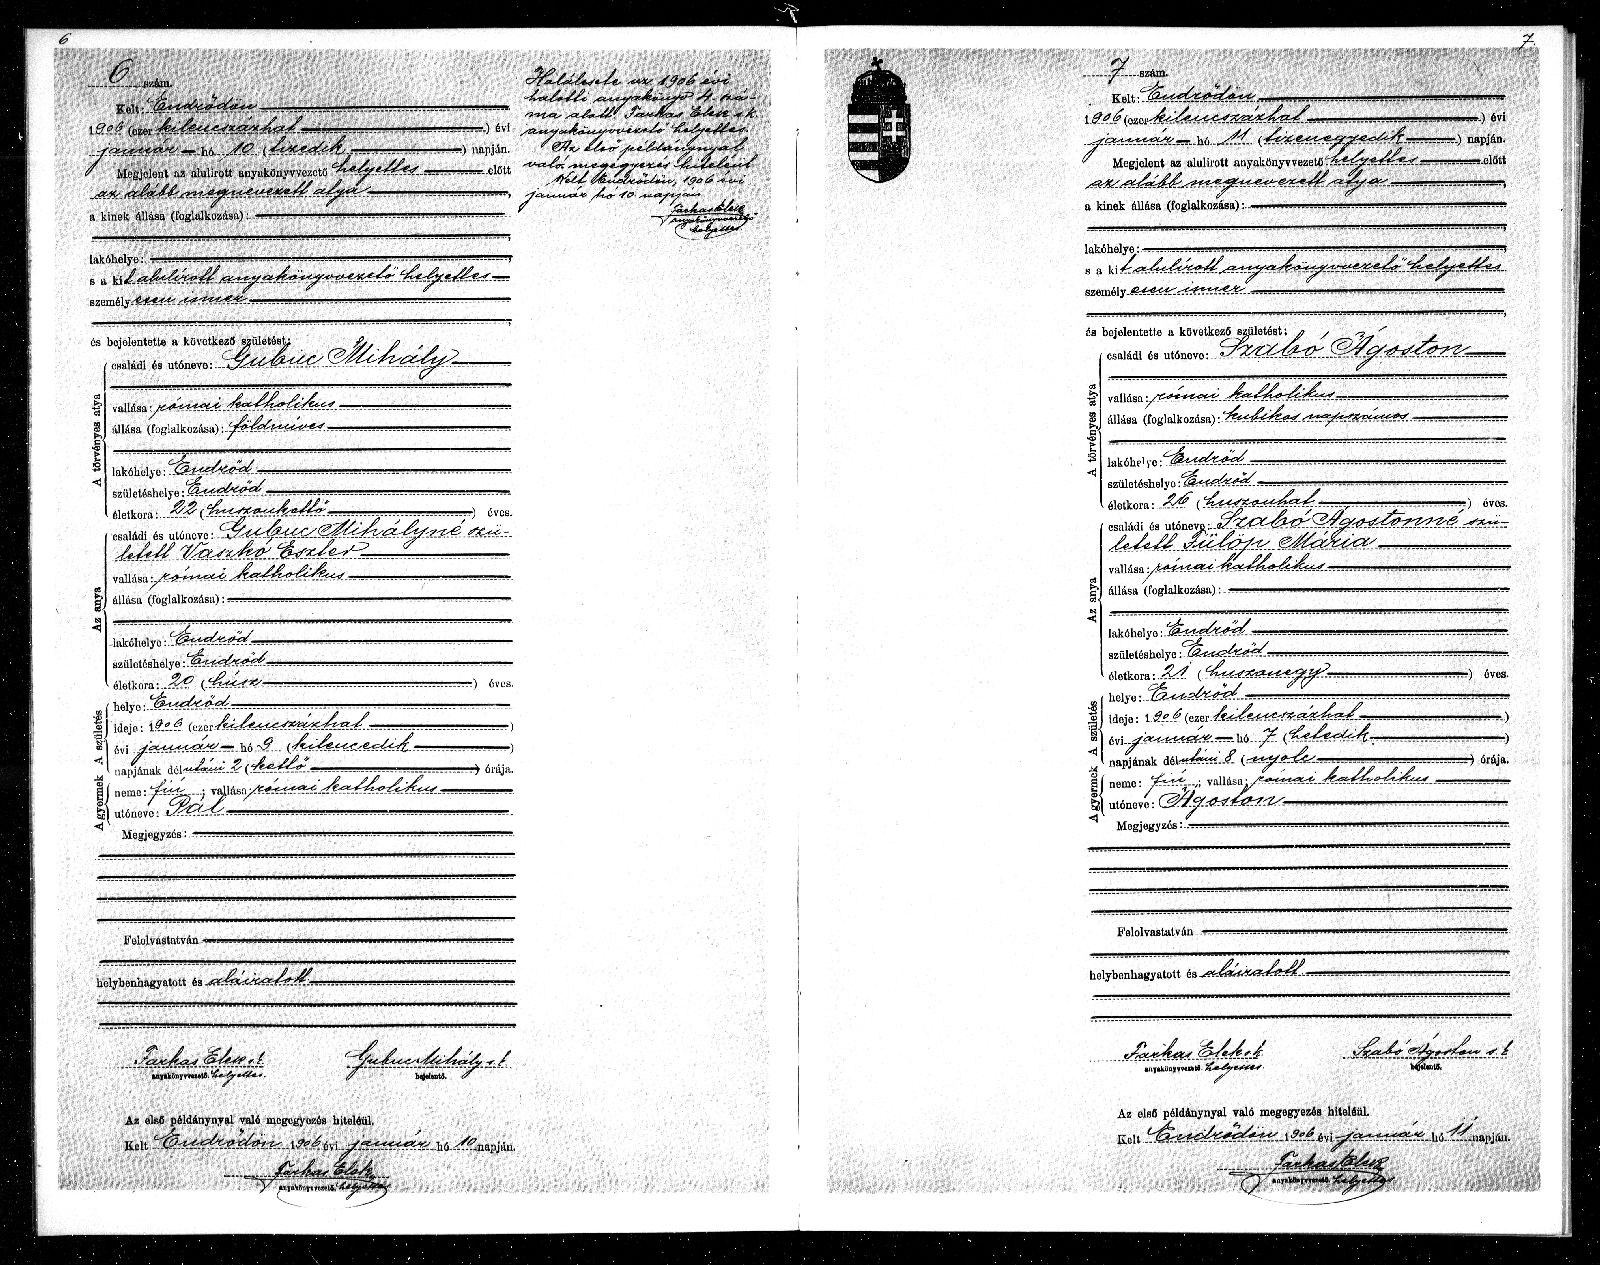 6
6 szám.
Kelt: Endrődön
1906 (ezer kilencszázhat) évi
január hó 10 (tizedik) napján.
Megjelent az alulirott anyakönyvvezető helyettes előtt
az alább megnevezett atya
a kinek állása (foglalkozása):
lakóhelye:
s a kit alulírott anyakönyvvezető helyettes
személyesen ismer
és bejelentette a következő születést:
A törvényes atya
családi és utóneve: Gubuc Mihály
vallása: római katholikus
állása (foglalkozása): földmíves
lakóhelye: Endrőd
születéshelye: Endrőd
életkora: 22 (huszonkettő) éves.
Az anya
családi és utóneve: Gubuc Mihályné szü-
letett Vaszkó Eszter
vallása: római katholikus
állása (foglalkozása):
lakóhelye: Endrőd
születéshelye: Endrőd
életkora: 20 (húsz) éves.
A születés
helye: Endrőd
ideje: 1906 (ezer kilencszázhat)
évi január hó 9 (kilencedik)
napjának délutáni 2 (kettő) órája.
A gyermek
neme: fiú; vallása: római katholikus
utóneve: Pál
Megjegyzés:
Felolvastatván
helybenhagyatott és aláiratott
Farkas Elek s.k. Gubuc Mihály s.k.
anyakönyvvezető. helyettes bejelentő.
Az első példánynyal való megegyezés hiteléül.
Kelt Endrődön 1906 évi január hó 10 napján.
Farkas Elek
anyakönyvvezető. helyettes
Halálesete az 1906 évi
halotti anyakönyv 4 szá-
ma alatt Farkas Elek s.k.
anyakönyvvezető helyettes.
Az első példánynyal
való megegyezés hiteléül
Kelt Endrődön, 1906 évi
január hó 10 napján
Farkas Elek
anyakönyvvezető
helyettes
7
7 szám.
Kelt: Endrődön
1906 (ezer kilencszázhat) évi
január hó 11 (tizenegyedik) napján.
Megjelent az alulirott anyakönyvvezető helyettes előtt
az alább megnevezett atya
a kinek állása (foglalkozása):
lakóhelye:
s a kit alulírott anyakönyvvezető helyettes
személyesen ismer
és bejelentette a következő születést:
A törvényes atya
családi és utóneve: Szabó Ágoston
vallása: római katholikus
állása (foglalkozása): kubikos napszámos
lakóhelye: Endrőd
születéshelye: Endrőd
életkora: 26 (huszonhat) éves.
Az anya
családi és utóneve: Szabó Ágostonné szü-
letett Fülöp Mária
vallása: római katholikus
állása (foglalkozása):
lakóhelye: Endrőd
születéshelye: Endrőd
életkora: 21 (huszonegy) éves.
A születés
helye: Endrőd
ideje: 1906 (ezer kilencszázhat)
évi január hó 7 (hetedik)
napjának délutáni 8 (nyolc) órája.
A gyermek
neme: fiú; vallása: római katholikus
utóneve: Ágoston
Megjegyzés:
Felolvastatván
helybenhagyatott és aláiratott
Farkas Elek s.k. Szabó Ágoston s.k.
anyakönyvvezető. helyettes bejelentő.
Az első példánynyal való megegyezés hiteléül.
Kelt Endrődön 1906 évi január hó 11 napján.
Farkas Elek
anyakönyvvezető. helyettes